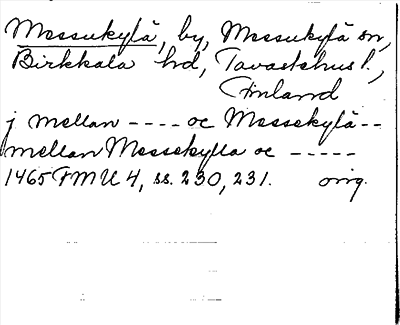 Messukylä, by, Messukylä sn,
Birkkala hd, Tavastehus l.,
Finland
j mellan ---- oc Messekylä--
mellan Messekylla oc -----
1465 FMU 4, ss. 230, 231. orig.